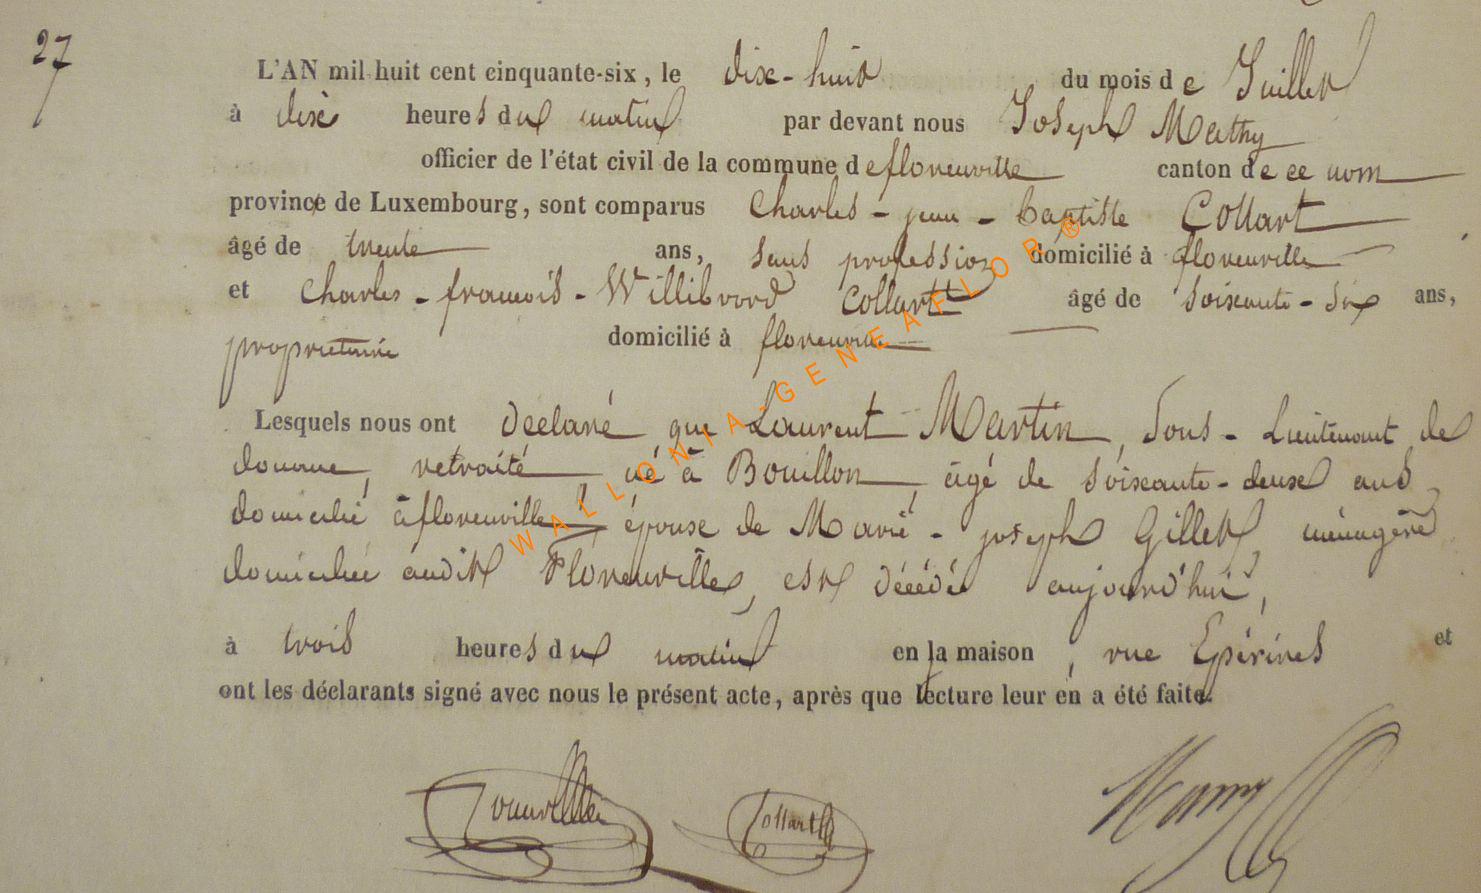 27
L'AN mil huit cent cinquante-six, le dix-huit du mois de Juillet
à dix heures du matin par devant nous Joseph Mathy
officier de l'état civil de la commune de florenville canton de ce nom
province de Luxembourg, sont comparus Charles-jean-baptiste Collart
âgé de trente ans, sans profession domicilié à florenville
et Charles-françois-Willibrord Collart âgé de soixante-six ans,
propriétaire domicilié à florenville
Lesquels nous ont déclaré que Laurent Martin, Sous-Lieutenant de
douane, retraité, né à Bouillon, âgé de soixante-deux ans,
domicilié à florenville, épouse de Marie-joseph Gillet, ménagère
domiciliée audit Florenville, est décédé aujourd'hui,
à trois heures du matin en la maison, rue Epérines et
ont les déclarants signé avec nous le présent acte, après que lecture leur en a été faite.
Collart
WALLONIA GENEAFLOR ®